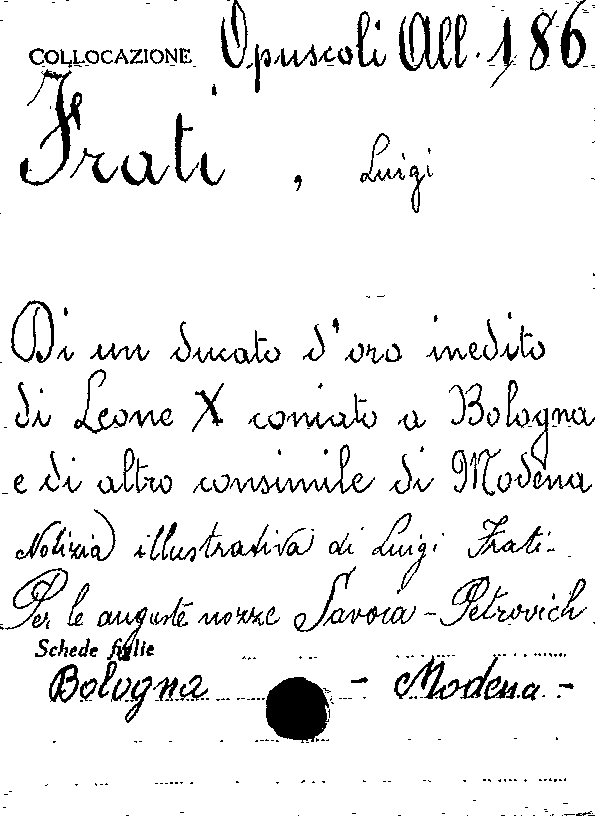 COLLOCAZIONE Opuscoli All. 186
Frati, Luigi
Di un ducato d'oro inedito
di Leone X coniato a Bologna
e di altro consimile di Modena
Notizia illustrativa di Luigi Frati.
Per le auguste nozze Savoia - Petrovich
Schede figlie
Bologna - Modena -